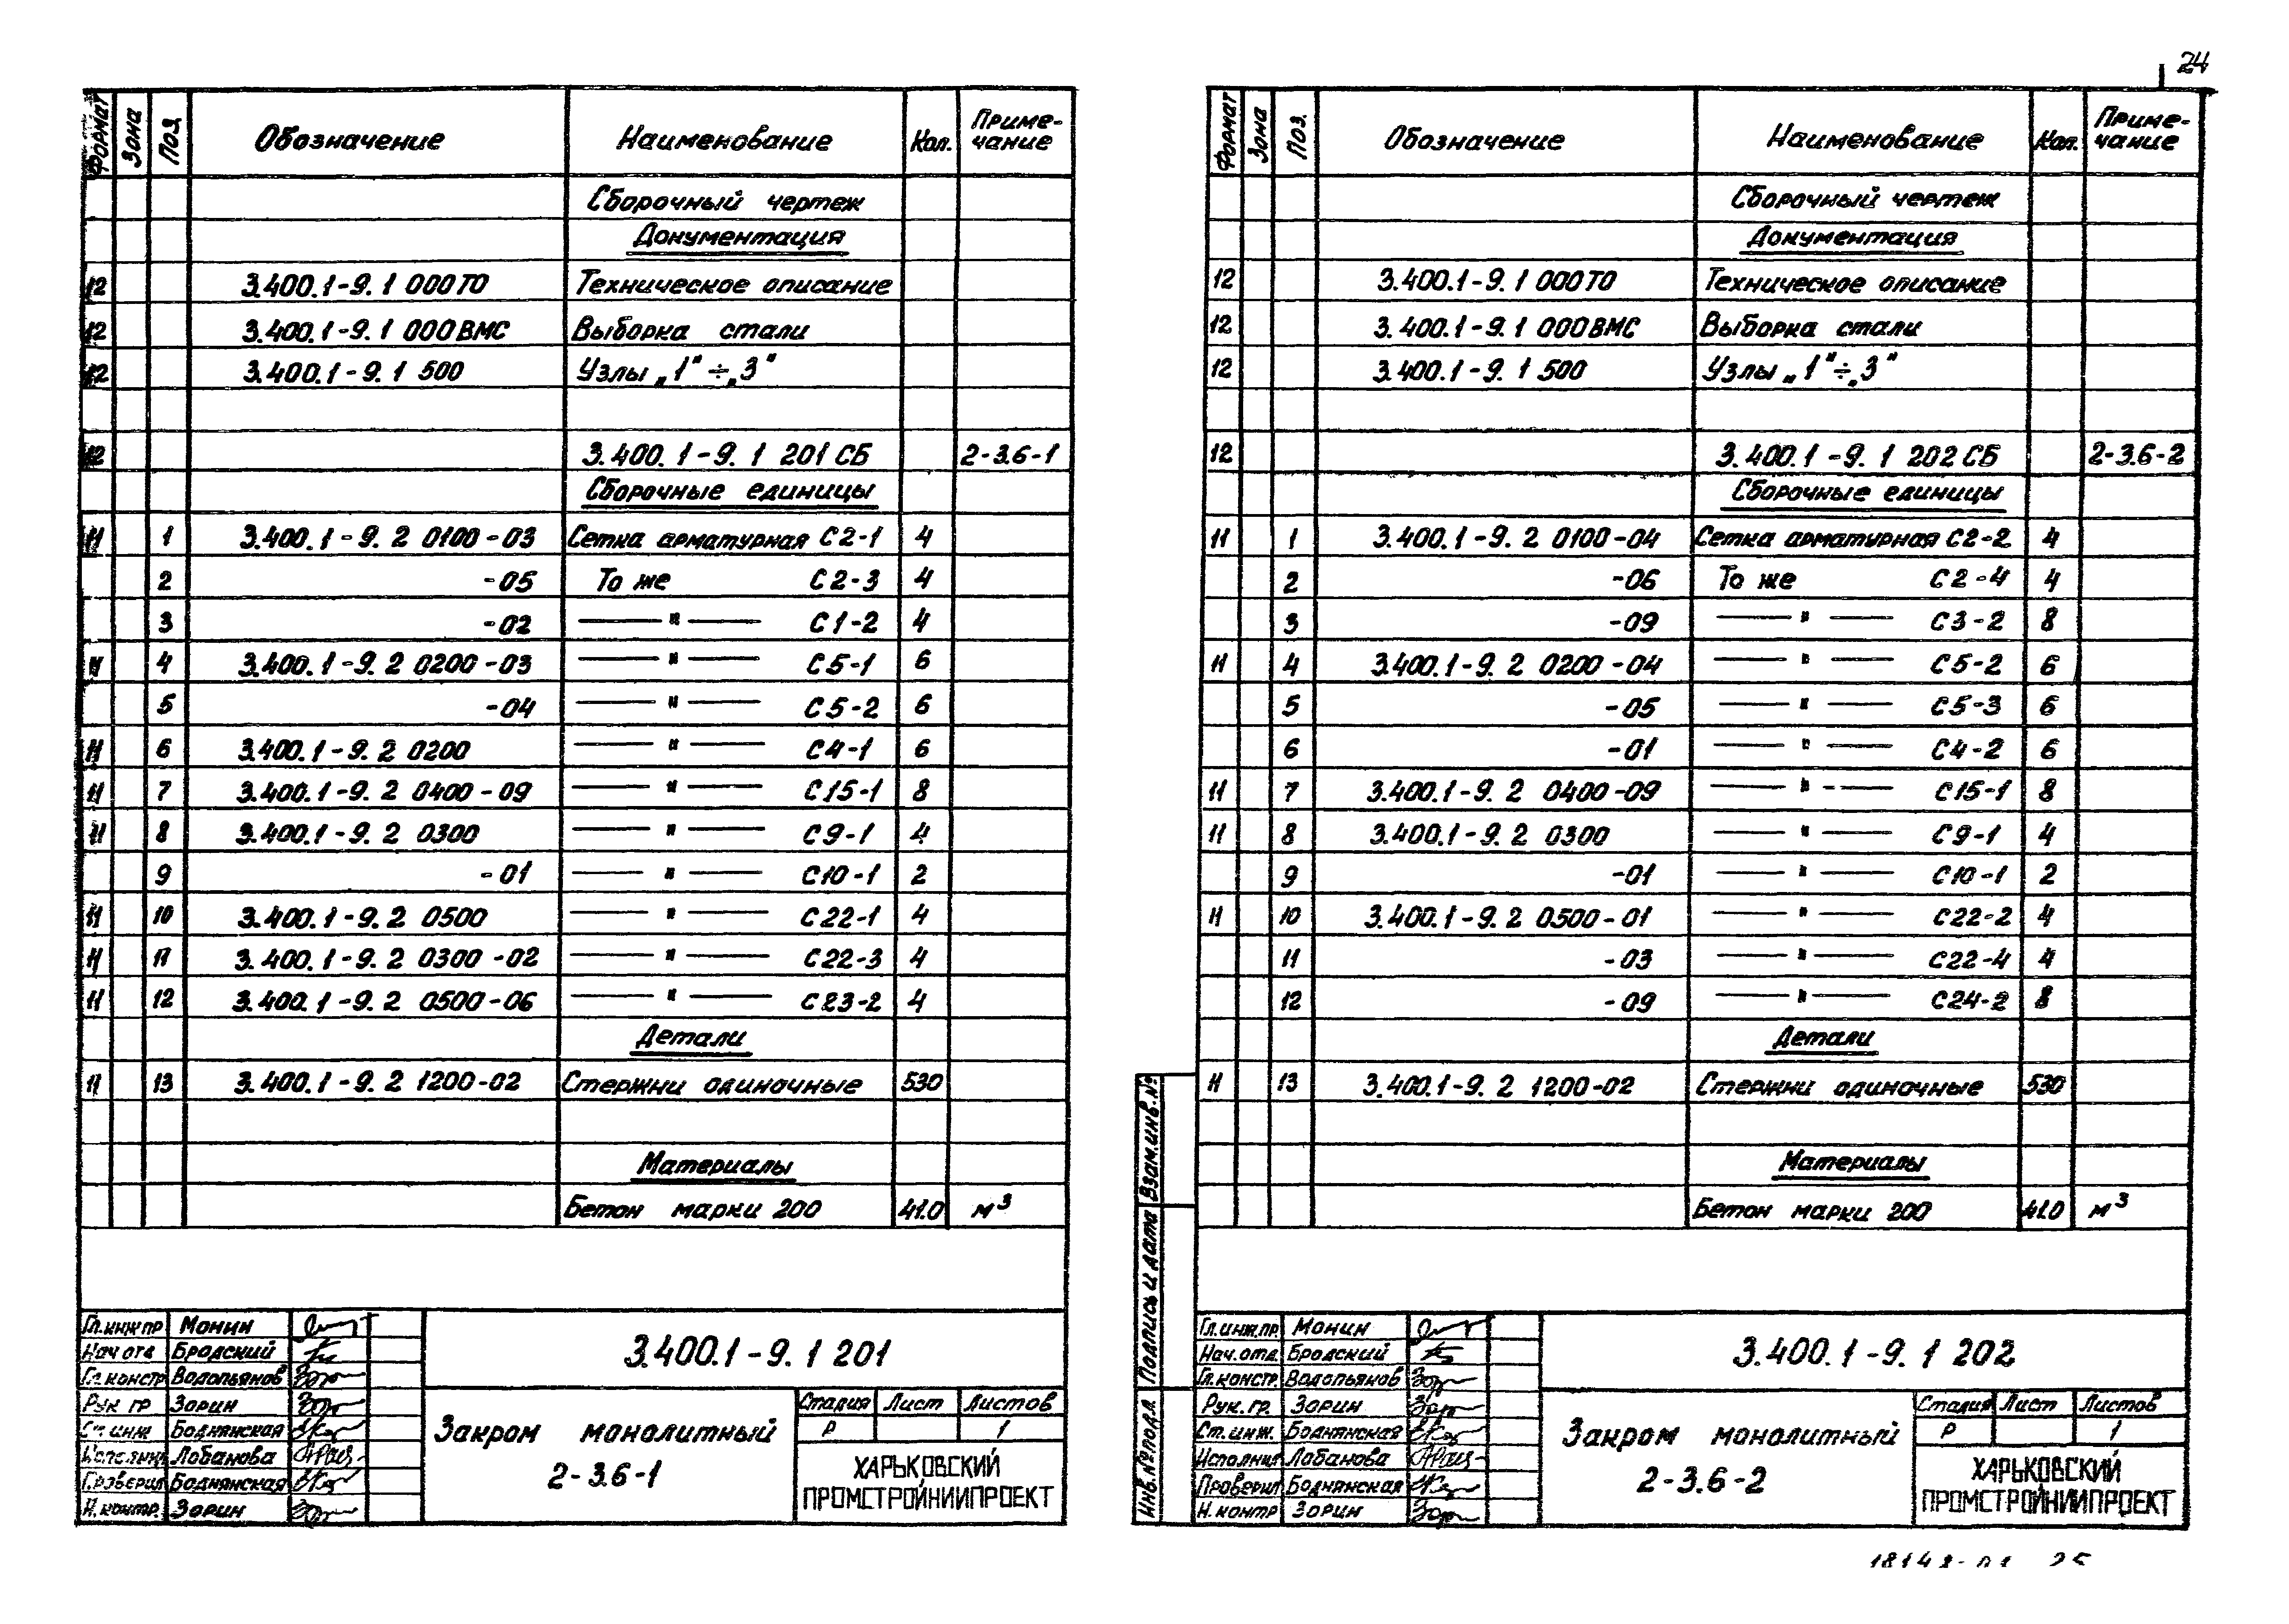 24
Формат Зона Поз. Обозначение Наименование Кол. Приме-
чание
Сборочный чертеж
Документация
12 3.400.1-9.1 000ТО Техническое описание
12 3.400.1-9.1 000ВМС Выборка стали
12 3.400.1-9.1 500 Узлы „1"÷„3"
12 3.400.1-9.1 201СБ 2-3.6-1
Сборочные единицы
11 1 3.400.1-9.2 0100-03 Сетка арматурная С2-1 4
2 -05 То же С2-3 4
3 -02 — " — С1-2 4
11 4 3.400.1-9.2 0200-03 — " — С5-1 6
5 -04 — " — С5-2 6
11 6 3.400.1-9.2 0200 — " — С4-1 6
11 7 3.400.1-9.2 0400-09 — " — С15-1 8
11 8 3.400.1-9.2 0300 — " — С9-1 4
9 -01 — " — С10-1 2
11 10 3.400.1-9.2 0500 — " — С22-1 4
11 11 3.400.1-9.2 0300-02 — " — С22-3 4
11 12 3.400.1-9.2 0500-06 — " — С23-2 4
Детали
11 13 3.400.1-9.2 1200-02 Стержни одиночные 530
Материалы
Бетон марки 200 41.0 м³
Гл.инж.пр Монин
Нач отд Бродский
Гл.констр Водопьянов
Рук гр Зорин
Ст инж Боднянская
Исполнил Лобанова
Проверил Боднянская
Н.контр. Зорин
3.400.1-9.1 201
Закром монолитный
2-3.6-1
Стадия Лист Листов
Р 1
ХАРЬКОВСКИЙ
ПРОМСТРОЙНИИПРОЕКТ
Формат Зона Поз. Обозначение Наименование Кол. Приме-
чание
Сборочный чертеж
Документация
12 3.400.1-9.1 000ТО Техническое описание
12 3.400.1-9.1 000ВМС Выборка стали
12 3.400.1-9.1 500 Узлы „1"÷„3"
12 3.400.1-9.1 202СБ 2-3.6-2
Сборочные единицы
11 1 3.400.1-9.2 0100-04 Сетка арматурная С2-2 4
2 -06 То же С2-4 4
3 -09 — " — С3-2 8
11 4 3.400.1-9.2 0200-04 — " — С5-2 6
5 -05 — " — С5-3 6
6 -01 — " — С4-2 6
11 7 3.400.1-9.2 0400-09 — " — С15-1 8
11 8 3.400.1-9.2 0300 — " — С9-1 4
9 -01 — " — С10-1 2
11 10 3.400.1-9.2 0500-01 — " — С22-2 4
11 -03 — " — С22-4 4
12 -09 — " — С24-2 8
Детали
11 13 3.400.1-9.2 1200-02 Стержни одиночные 530
Материалы
Бетон марки 200 41.0 м³
Взам.инв.№
Подпись и дата
Инв.№ подл.
Гл.инж.пр. Монин
Нач.отд. Бродский
Гл.констр. Водопьянов
Рук.гр. Зорин
Ст.инж. Боднянская
Исполнил Лобанова
Проверил Боднянская
Н.контр Зорин
3.400.1-9.1 202
Закром монолитный
2-3.6-2
Стадия Лист Листов
Р 1
ХАРЬКОВСКИЙ
ПРОМСТРОЙНИИПРОЕКТ